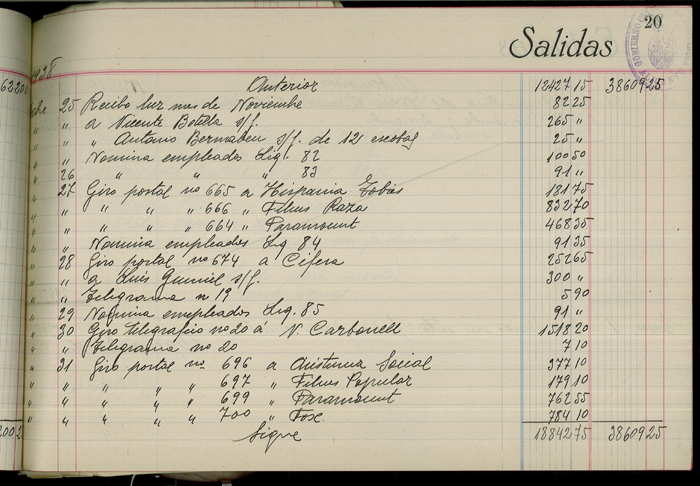 20
Salidas
Anterior 12427 15 38609 25
25 Recibo luz mes de Noviembre 82 25
„ a Vicente Botella s/f. 265 „
„ „ Antonio Bernabeu s/f. de 12 escobas 25 „
„ Nomina empleados Liq. 82 100 50
26 „ „ „ 83 91 „
27 Giro postal nº 665 a Hispania Tobis 181 75
„ „ „ „ 666 „ Films Raza 832 70
„ „ „ „ 664 „ Paramount 468 35
„ Nomina empleados Liq 84 91 35
28 Giro postal nº 674 a Cifesa 252 65
„ a Luis s/f. 300 „
„ Telegrama n 19 5 90
29 Nomina empleados Liq. 85 91 „
30 Giro telegrafico nº do a V. Carbonell 1518 20
„ Telegrama nº do 7 10
31 Giro postal nº 696 a Asistencia Social 377 10
„ „ „ „ 697 „ Films Popular 179 10
„ „ „ „ 699 „ Paramount 762 55
„ „ „ „ 700 „ Fox 784 10
Sigue 18842 75 38609 25